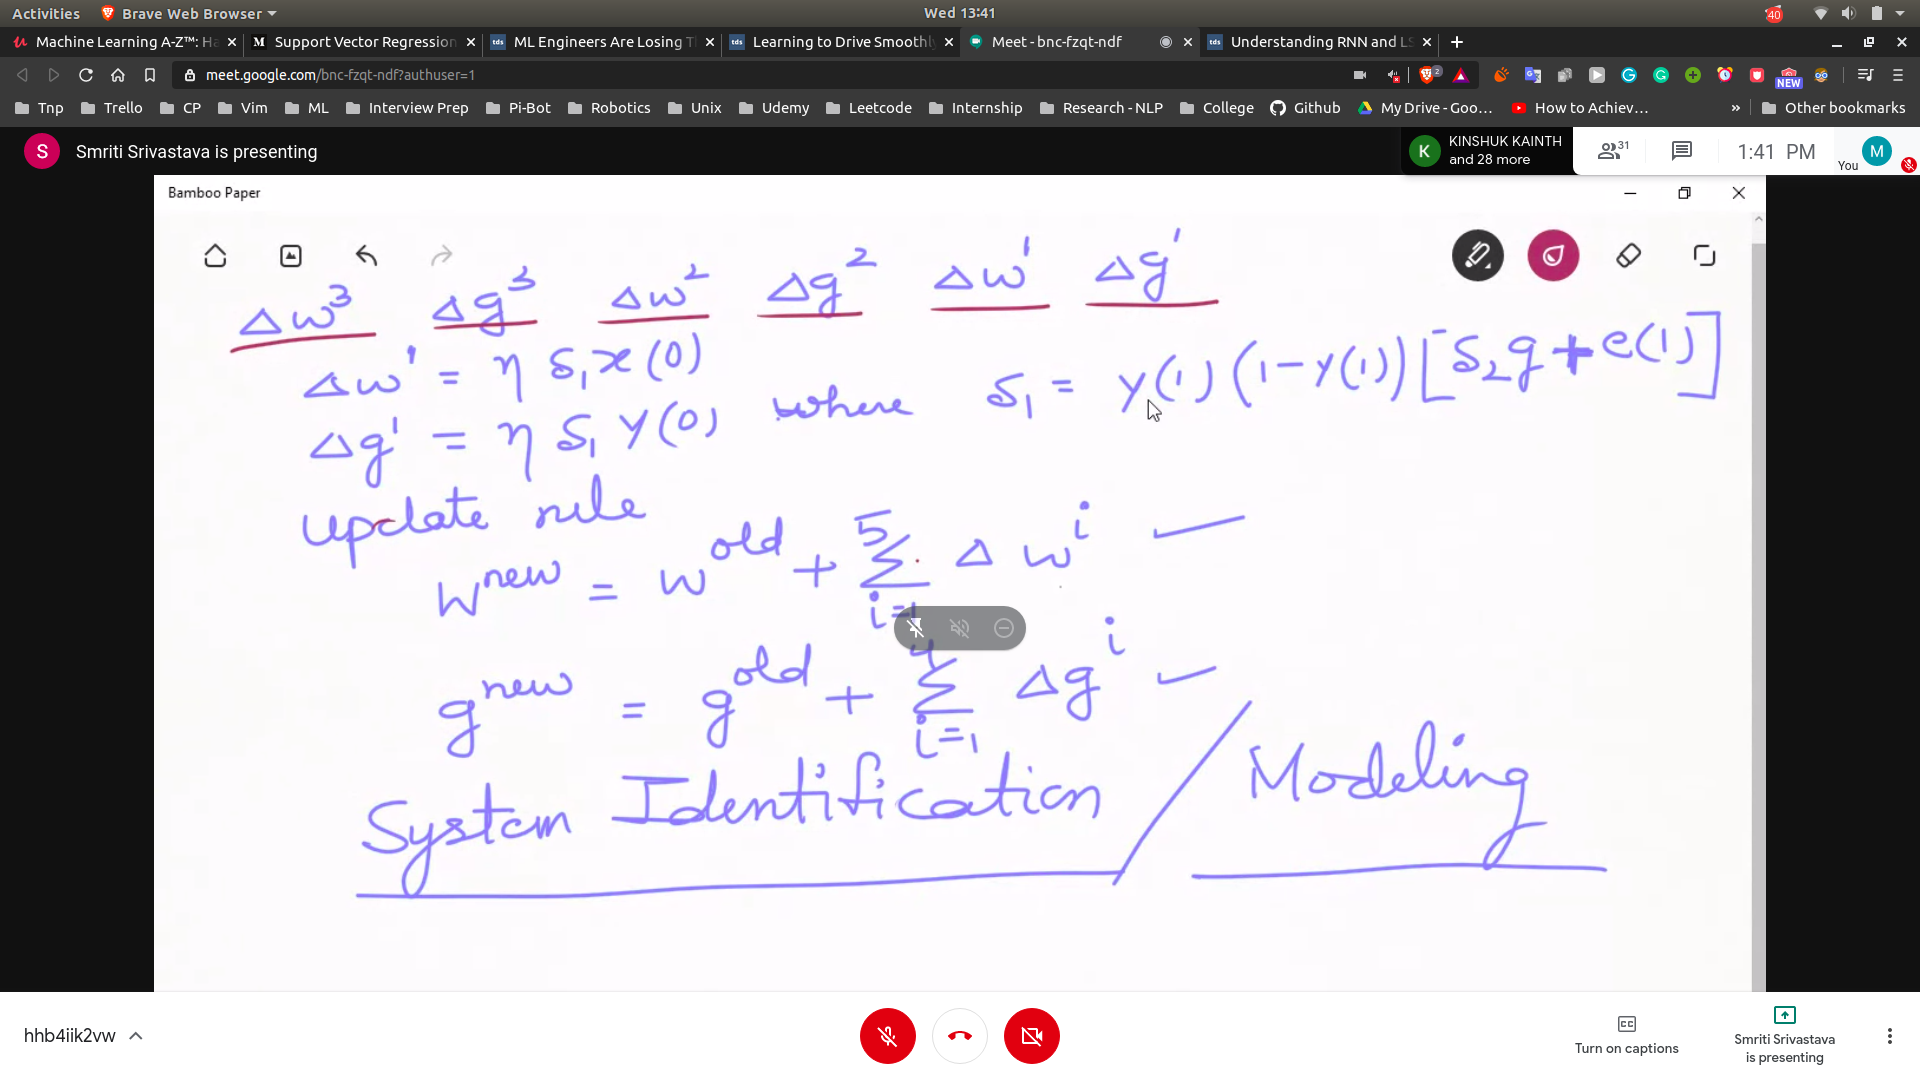 Activities Brave Web Browser Wed 13:41 40
Machine Learning A-Z™: Ha Support Vector Regression ML Engineers Are Losing T Learning to Drive Smoothly Meet - bnc-fzqt-ndf Understanding RNN and LS
meet.google.com/bnc-fzqt-ndf?authuser=1 2 NEW
Tnp Trello CP Vim ML Interview Prep Pi-Bot Robotics Unix Udemy Leetcode Internship Research - NLP College Github My Drive - Goo... How to Achiev... » Other bookmarks
S Smriti Srivastava is presenting
K KINSHUK KAINTH
and 28 more
31 1:41 PM You M
Bamboo Paper
Δw³ Δg³ Δw² Δg² Δw¹ Δg¹
Δw¹ = η δ₁x(0)
Δg¹ = η δ₁ y(0) where δ₁ = y(1)(1-y(1))[δ₂g + e(1)]
update rule
w^new = w^old + Σ_{i=1}^{5} Δw^i
g^new = g^old + Σ_{i=1}^{4} Δg^i
System Identification / Modeling
hhb4iik2vw
Turn on captions
Smriti Srivastava
is presenting